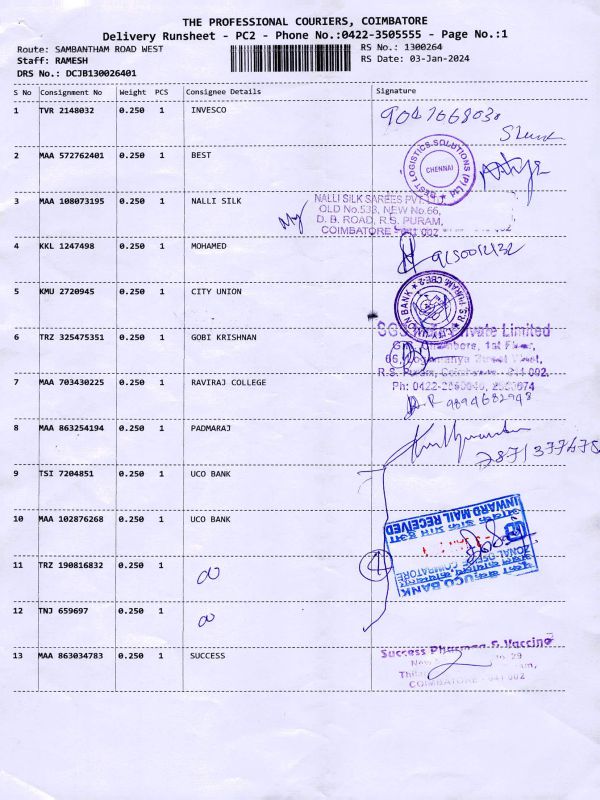 THE PROFESSIONAL COURIERS, COIMBATORE
Delivery Runsheet - PC2 - Phone No.:0422-3505555 - Page No.:1
Route: SAMBANTHAM ROAD WEST
RS No.: 1300264
Staff: RAMESH
RS Date: 03-Jan-2024
DRS No.: DCJB130026401
S No Consignment No Weight PCS Consignee Details Signature
1 TVR 2148032 0.250 1 INVESCO
2 MAA 572762401 0.250 1 BEST
BEST LOGISTICS SOLUTIONS (P) Ltd
CHENNAI
3 MAA 108073195 0.250 1 NALLI SILK
NALLI SILK SAREES PVT. LTD.
OLD No.533, NEW No.66,
D. B. ROAD, R.S. PURAM,
COIMBATORE 641 002
4 KKL 1247498 0.250 1 MOHAMED
5 KMU 2720945 0.250 1 CITY UNION
6 TRZ 325475351 0.250 1 GOBI KRISHNAN
Private Limited
1st Floor,
R.S. Puram,
Ph: 0422-
7 MAA 703430225 0.250 1 RAVIRAJ COLLEGE
9894682948
8 MAA 863254194 0.250 1 PADMARAJ
9 TSI 7204851 0.250 1 UCO BANK
10 MAA 102876268 0.250 1 UCO BANK
INWARD MAIL RECEIVED
ZONAL OFFICE, COIMBATORE
UCO BANK
11 TRZ 190816832 0.250 1
4
12 TNJ 659697 0.250 1
13 MAA 863034783 0.250 1 SUCCESS
Success Pharma & Vaccine
COIMBATORE - 641 002